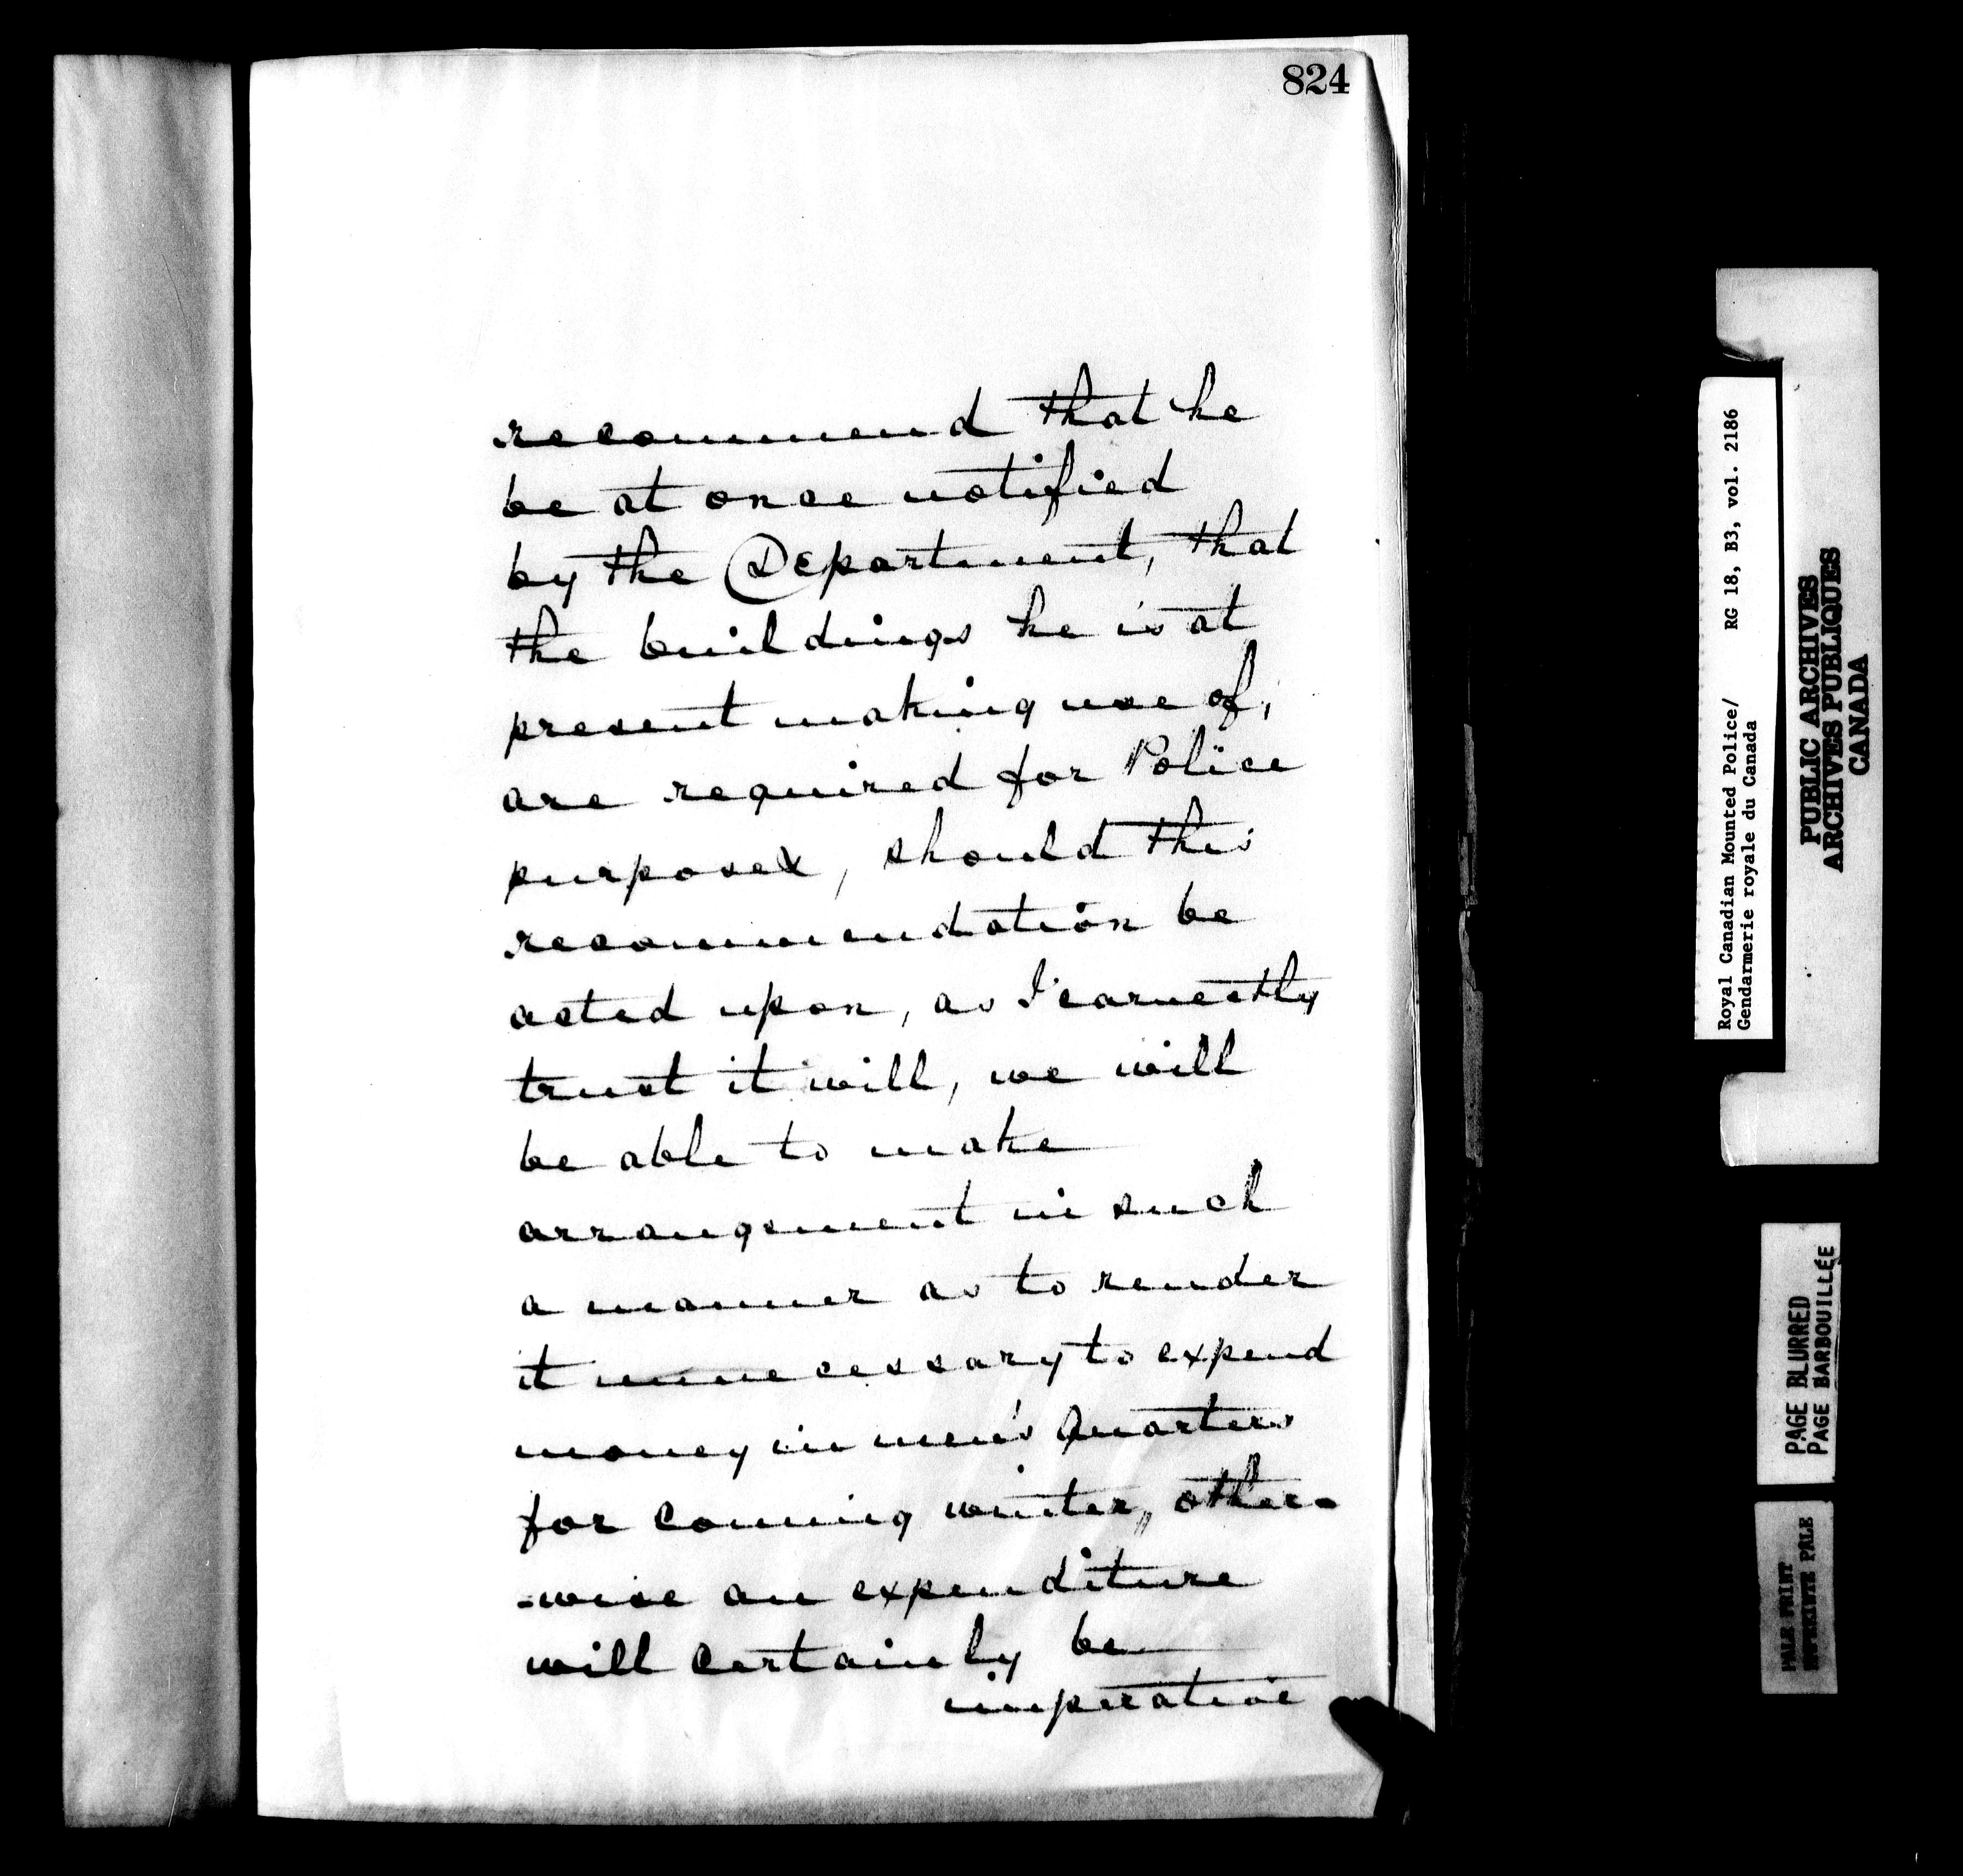 824
recommend that he
be at once notified
by the Department, that
the buildings he is at
present making use of,
are required for Police
purposes, should this
recommendation be
acted upon, as I earnestly
trust it will, we will
be able to make
arrangement in such
a manner as to render
it unnecessary to expend
money in men's Quarters
for coming winter, other-
-wise an expenditure
will certainly be
imperative
Royal Canadian Mounted Police/ RG 18, B3, vol. 2186
Gendarmerie royale du Canada
PUBLIC ARCHIVES
ARCHIVES PUBLIQUES
CANADA
PAGE BLURRED
PAGE BARBOUILLÉE
PALE PRINT
IMPRIMÉE PALE